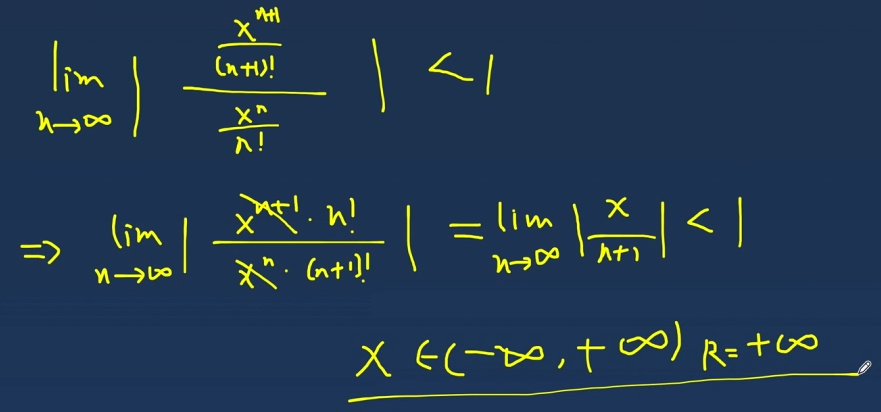 lim n→∞ | (x^(n+1)/(n+1)!) / (x^n/n!) | < 1
⇒ lim n→∞ | (x^(n+1) · n!) / (x^n · (n+1)!) | = lim n→∞ | x/(n+1) | < 1
x ∈ (-∞, +∞) R = +∞